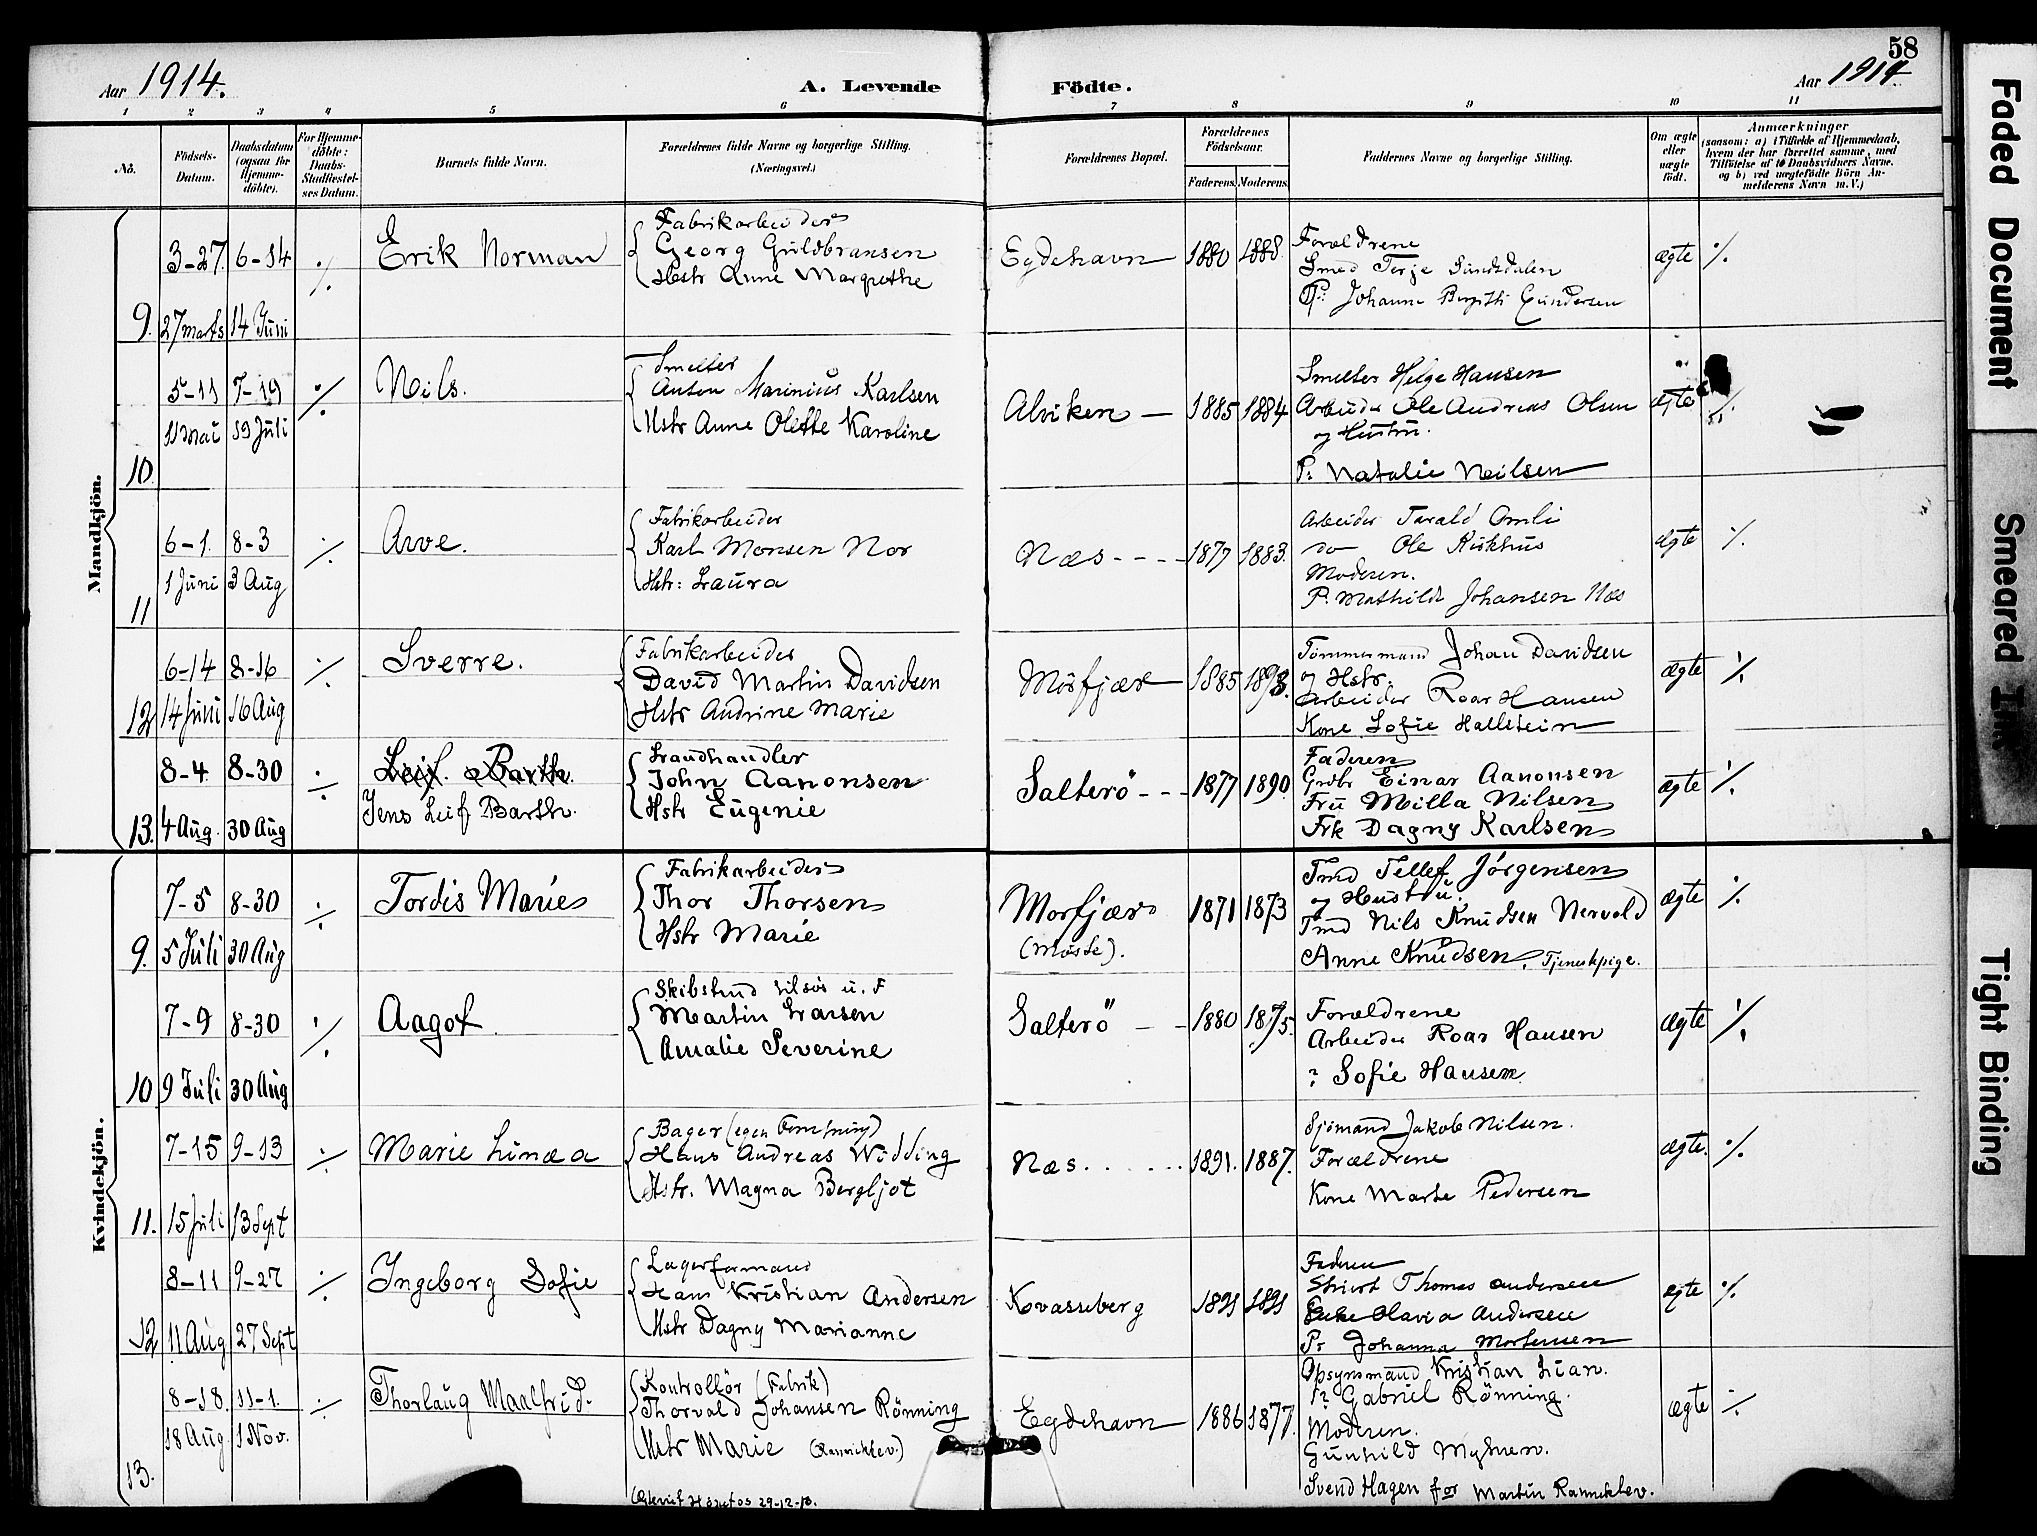 58
Aar 1914.
A. Levende
Födte.
Aar 1914
1 2 3 4 5 6 7 8 9 10 11
No.
Födsels-
Datum.
Daabsdatum
(ogsaa for
Hjemme-
döbte).
For Hjemme-
döbte:
Daabs-
Stadfæstel-
ses Datum.
Barnets fulde Navn.
Forældrenes fulde Navne og borgerlige Stilling.
(Næringsvei.)
Forældrenes Bopæl.
Forældrenes
Födselsaar.
Faderens. Moderens.
Faddernes Navne og borgerlige Stilling.
Om ægte
eller
uægte
födt.
Anmærkninger
(saasom: a) i Tilfælde af Hjemmedaab,
hvem der har forrettet samme, med
Tilföielse af to Daabsvidners Navne.
og b) ved uægtefödte Börn An-
melderens Navn m. V.)
Mandkjön.
9.
3-27. 6-14
27 marts 14 Juni
Erik Norman
Fabrikarbeider
Georg Guldbransen
Hstr Anne Margrethe
Egdehavn
1880 1888.
Forældrene
Smed Terje Sundsdalen
P: Johanne Birgitte Gundersen
ægte ·/.
10.
5-11 7-19
11 mai 19 Juli
Nils.
Smelter
Anton Marinius Karlsen
Hstr Anne Olette Karoline
Alviken
1885 1884
Smelter Helge Hansen
Arbeider Ole Andreas Olsen
og Hustru.
P: Natalie Neilsen
ægte ·/.
11
6-1. 8-3
1 Juni 3 Aug
Arve.
Fabrikarbeider
Karl Monsen Nor
Hstr: Laura
Næs
1877 1883.
Arbeider Tarald Omli
do Ole
Moderen.
P. Mathilde Johansen Næs
ægte ·/.
12
6-14 8-16
14 Juni 16 Aug
Sverre.
Fabrikarbeider
David Martin Davidsen
Hstr Andrine Marie
Mörfjær
1885
Tömmermand Johan Davidsen
og Hstr.
Arbeider Roar Hansen
Kone Sofie Hallstein
ægte ·/.
13.
8-4. 8-30
4 Aug. 30 Aug
Leif. Barth.
Jens Leif Barth.
Landhandler
John Aanonsen
Hstr Eugenie
Salterö
1877 1890.
Faderen
Grdbr Einar Aanonsen
Fru Milla Nilsen
Frk Dagny Karlsen
ægte ·/.
Kvindekjön.
9.
7-5 8-30
5 Juli 30 Aug
Tordis Marie
Fabrikarbeider
Thor Thorsen
Hstr Marie
Morfjær
(Möste).
1871 1873
Tmd Tellef Jörgensen
og Hustru.
Tmd Nils Knudsen Nervold
Anne Knudsen, Tjenestpige.
ægte ·/.
10.
7-9 8-30
9 Juli 30 Aug
Aagot
Martin Larsen
Amalie Severine
Salterö
1880 1875.
Forældrene
Arbeider Roar Hansen
Sofie Hansen
ægte ·/.
11.
7-15 9-13
15 Juli 13 Sept
Marie Linæa
Bager (egen Forretning)
Hans Andreas Widding
Hstr. Magna Bergljot
Næs
1891. 1887.
Sjömand Jakob Nilsen.
Forældrene
Kone Marte Pedersen
ægte. ·/.
12
8-11 9-27
11 Aug 27 Sept
Ingeborg Sofie
Lagerformand
Hans Kristian Andersen
Hstr Dagny Marianne
Kvasseberg
1891 1891
Faderen
Thomas Andersen
Enke Olavia Andersen
P: Johanna Mortensen
ægte ·/.
13.
8-18. 11-1.
18 Aug 1 Nov.
Thorlaug Maalfrid.
Kontrollör (Fabrik)
Thorvald Johansen Rönning
Hstr Marie (Ranneklev.)
29-12-13.
Egdehavn
1886 1877.
Opsynsmand Kristian Lian.
P: Gabriel Rönning.
Moderen.
Gunhild Myhren.
Svend Hagen for Martin Ranneklev.
ægte ·/.
Faded Document
Smeared Ink
Tight Binding